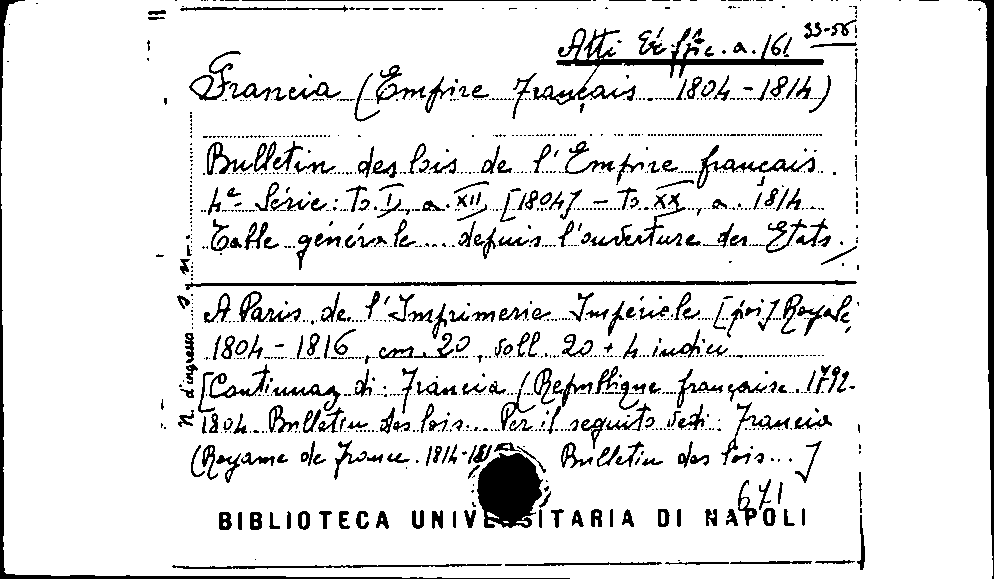 33-56
Atti a. 161
Francia (Empire Français. 1804-1814)
Bulletin des lois de l'Empire français.
4e Série: To. I, a. XII, [1804] - To. XX, a. 1814
Table générale... depuis l'ouverture des Etats.
A Paris, de l'Imprimerie Impériale [poi] Royale,
1804-1816, cm. 20, voll. 20 + 4 indici
[Continuaz. di: Francia (République française. 1792-
1804. Bulletin des lois... Per il seguito vedi: Francia
(Royame de France. 1814- Bulletin des lois...]
671
N. d'ingresso
BIBLIOTECA UNIVERSITARIA DI NAPOLI